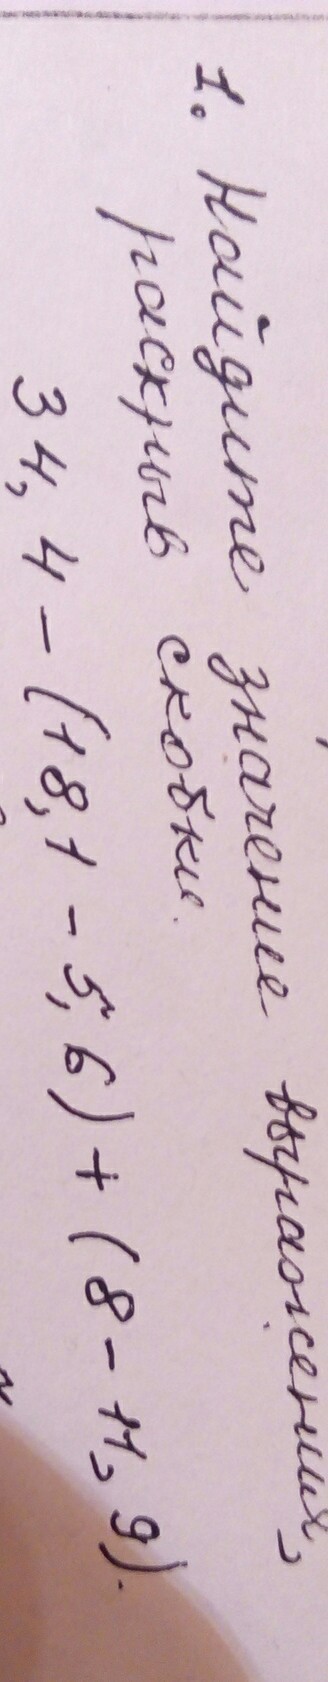 1. Найдите значение выражения,
раскрыв скобки.
34,4 - (18,1 - 5,6) + (8 - 11,9).